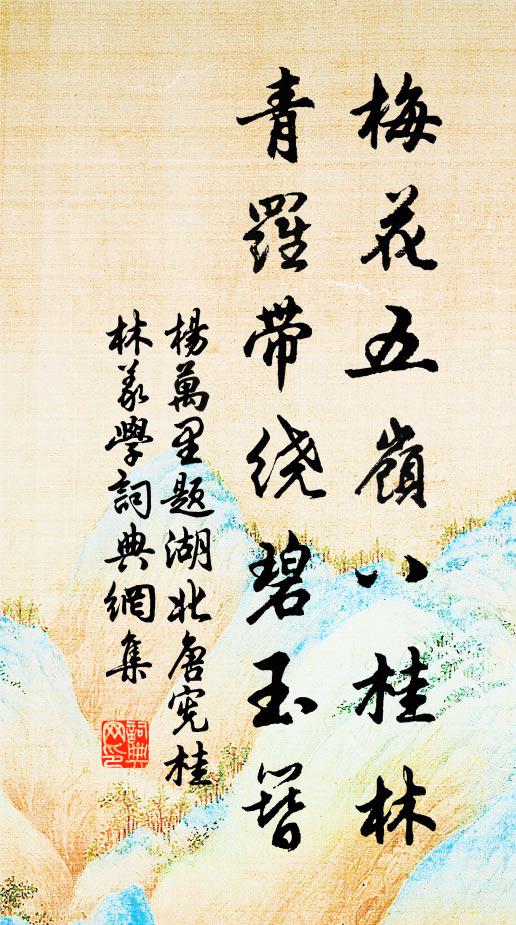 梅花五嶺八桂林
青羅带绕碧玉簪
楊萬里题湖北唐宪桂
林義學詞典網集
詞典
网印